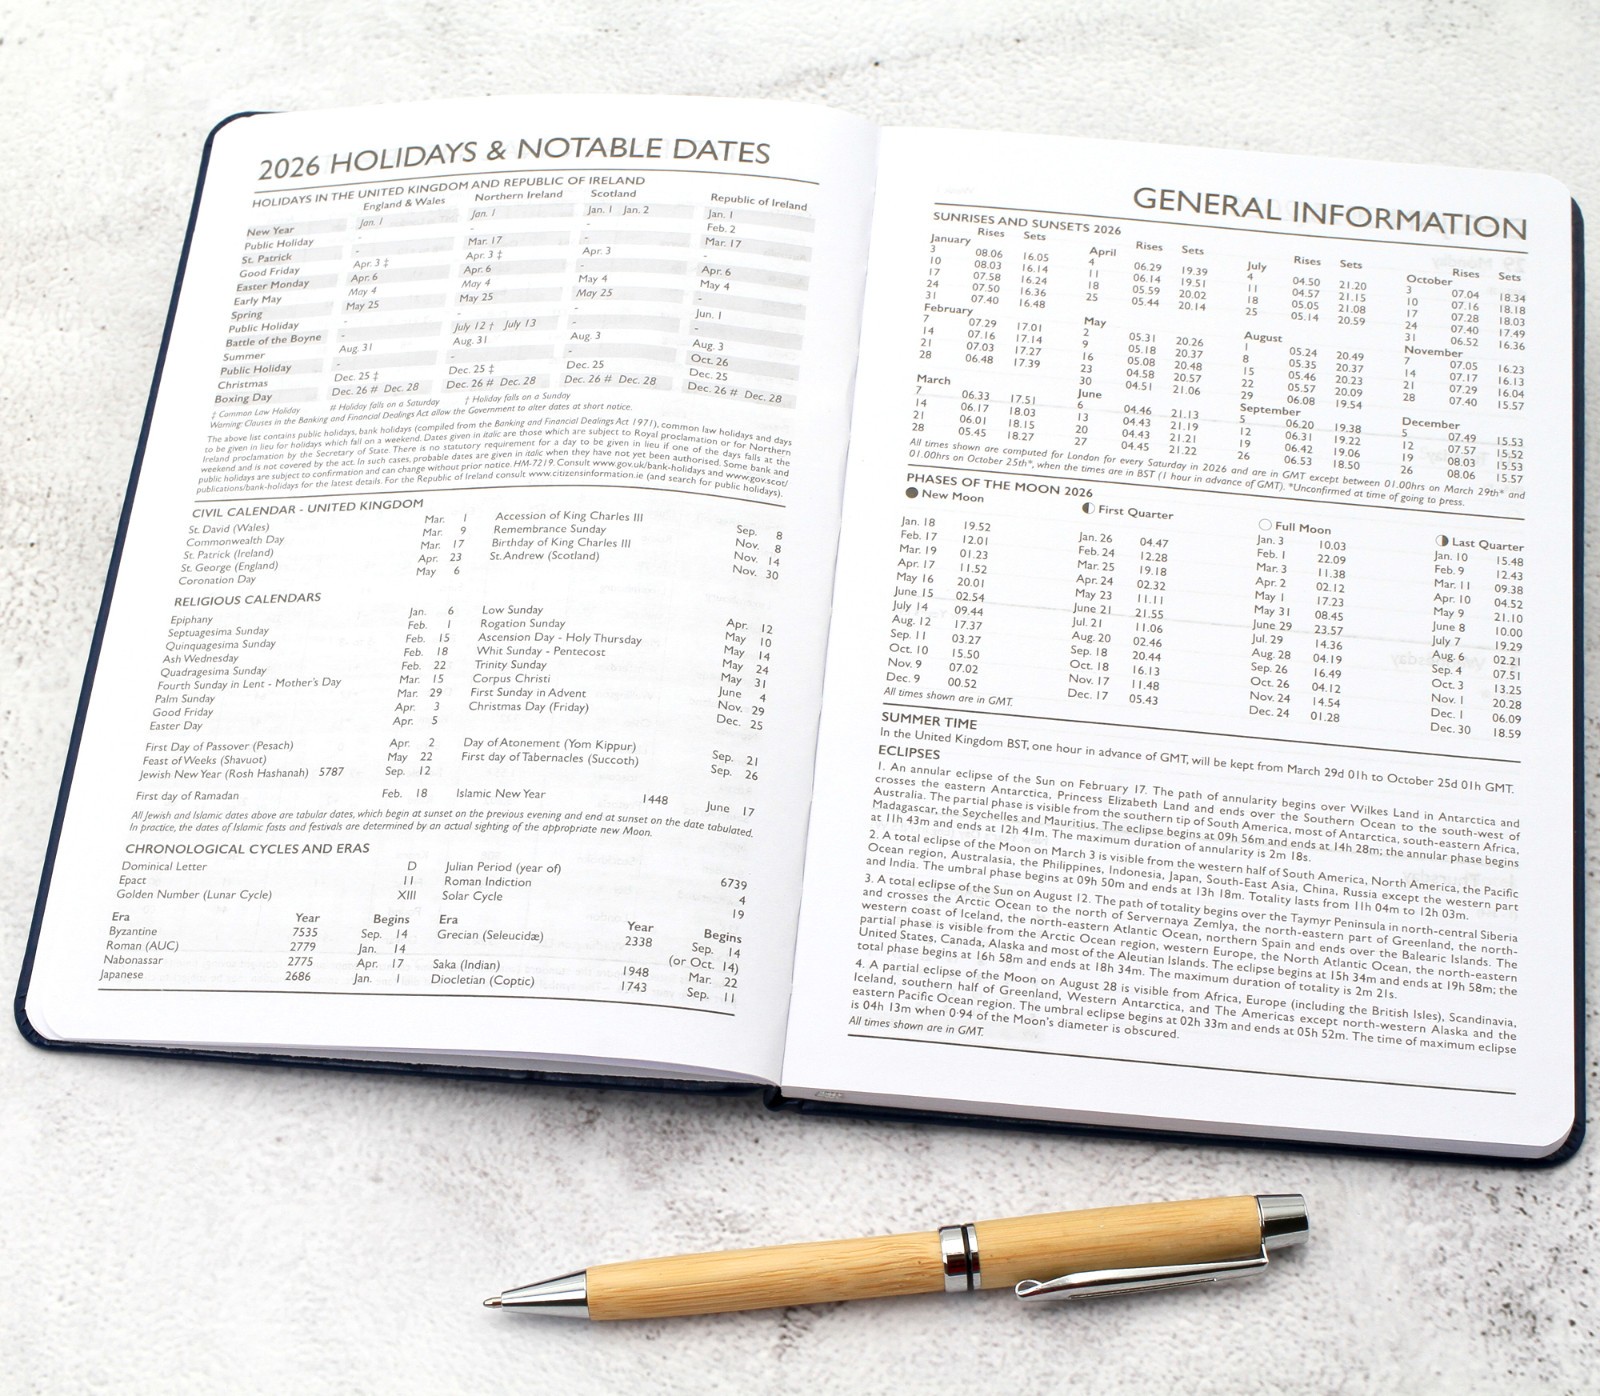 2026 HOLIDAYS & NOTABLE DATES
HOLIDAYS IN THE UNITED KINGDOM AND REPUBLIC OF IRELAND
England & Wales Northern Ireland Scotland Republic of Ireland
New Year Jan. 1 Jan. 1 Jan. 1 Jan. 2 Jan. 1
Public Holiday - - - Feb. 2
St. Patrick - Mar. 17 - Mar. 17
Good Friday Apr. 3 ‡ Apr. 3 ‡ Apr. 3 -
Easter Monday Apr. 6 Apr. 6 - Apr. 6
Early May May 4 May 4 May 4 May 4
Spring May 25 May 25 May 25 -
Public Holiday - - - Jun. 1
Battle of the Boyne - July 12 † July 13 - -
Summer Aug. 31 Aug. 31 Aug. 3 Aug. 3
Public Holiday - - - Oct. 26
Christmas Dec. 25 ‡ Dec. 25 ‡ Dec. 25 Dec. 25
Boxing Day Dec. 26 # Dec. 28 Dec. 26 # Dec. 28 Dec. 26 # Dec. 28 Dec. 26 # Dec. 28
‡ Common Law Holiday # Holiday falls on a Saturday † Holiday falls on a Sunday
Warning: Clauses in the Banking and Financial Dealings Act allow the Government to alter dates at short notice.
The above list contains public holidays, bank holidays (compiled from the Banking and Financial Dealings Act 1971), common law holidays and days
to be given in lieu for holidays which fall on a weekend. Dates given in italic are those which are subject to Royal proclamation or for Northern
Ireland proclamation by the Secretary of State. There is no statutory requirement for a day to be given in lieu if one of the days falls at the
weekend and is not covered by the act. In such cases, probable dates are given in italic when they have not yet been authorised. Some bank and
public holidays are subject to confirmation and can change without prior notice. HM-7219. Consult www.gov.uk/bank-holidays and www.gov.scot/
publications/bank-holidays for the latest details. For the Republic of Ireland consult www.citizensinformation.ie (and search for public holidays).
CIVIL CALENDAR - UNITED KINGDOM
St. David (Wales) Mar. 1 Accession of King Charles III Sep. 8
Commonwealth Day Mar. 9 Remembrance Sunday Nov. 8
St. Patrick (Ireland) Mar. 17 Birthday of King Charles III Nov. 14
St. George (England) Apr. 23 St. Andrew (Scotland) Nov. 30
Coronation Day May 6
RELIGIOUS CALENDARS
Epiphany Jan. 6 Low Sunday Apr. 12
Septuagesima Sunday Feb. 1 Rogation Sunday May 10
Quinquagesima Sunday Feb. 15 Ascension Day - Holy Thursday May 14
Ash Wednesday Feb. 18 Whit Sunday - Pentecost May 24
Quadragesima Sunday Feb. 22 Trinity Sunday May 31
Fourth Sunday in Lent - Mother's Day Mar. 15 Corpus Christi June 4
Palm Sunday Mar. 29 First Sunday in Advent Nov. 29
Good Friday Apr. 3 Christmas Day (Friday) Dec. 25
Easter Day Apr. 5
First Day of Passover (Pesach) Apr. 2 Day of Atonement (Yom Kippur) Sep. 21
Feast of Weeks (Shavuot) May 22 First day of Tabernacles (Succoth) Sep. 26
Jewish New Year (Rosh Hashanah) 5787 Sep. 12
First day of Ramadan Feb. 18 Islamic New Year 1448 June 17
All Jewish and Islamic dates above are tabular dates, which begin at sunset on the previous evening and end at sunset on the date tabulated.
In practice, the dates of Islamic fasts and festivals are determined by an actual sighting of the appropriate new Moon.
CHRONOLOGICAL CYCLES AND ERAS
Dominical Letter D Julian Period (year of) 6739
Epact 11 Roman Indiction 4
Golden Number (Lunar Cycle) XIII Solar Cycle 19
Era Year Begins Era Year Begins
Byzantine 7535 Sep. 14 Grecian (Seleucidæ) 2338 Sep. 14
Roman (AUC) 2779 Jan. 14 (or Oct. 14)
Nabonassar 2775 Apr. 17 Saka (Indian) 1948 Mar. 22
Japanese 2686 Jan. 1 Diocletian (Coptic) 1743 Sep. 11
GENERAL INFORMATION
SUNRISES AND SUNSETS 2026
Rises Sets Rises Sets Rises Sets Rises Sets
January April July October
3 08.06 16.05 4 06.29 19.39 4 04.50 21.20 3 07.04 18.34
10 08.03 16.14 11 06.14 19.51 11 04.57 21.15 10 07.16 18.18
17 07.58 16.24 18 05.59 20.02 18 05.05 21.08 17 07.28 18.03
24 07.50 16.36 25 05.44 20.14 25 05.14 20.59 24 07.40 17.49
31 07.40 16.48 31 06.52 16.36
February May August November
7 07.29 17.01 2 05.31 20.26 1 05.24 20.49 7 07.05 16.23
14 07.16 17.14 9 05.18 20.37 8 05.35 20.37 14 07.17 16.13
21 07.03 17.27 16 05.08 20.48 15 05.46 20.23 21 07.29 16.04
28 06.48 17.39 23 04.58 20.57 22 05.57 20.09 28 07.40 15.57
30 04.51 21.06 29 06.08 19.54
March June September December
7 06.33 17.51 6 04.46 21.13 5 06.20 19.38 5 07.49 15.53
14 06.17 18.03 13 04.43 21.19 12 06.31 19.22 12 07.57 15.52
21 06.01 18.15 20 04.43 21.21 19 06.42 19.06 19 08.03 15.53
28 05.45 18.27 27 04.45 21.22 26 06.53 18.50 26 08.06 15.57
All times shown are computed for London for every Saturday in 2026 and are in GMT except between 01.00hrs on March 29th* and
01.00hrs on October 25th*, when the times are in BST (1 hour in advance of GMT). *Unconfirmed at time of going to press.
PHASES OF THE MOON 2026
New Moon First Quarter Full Moon Last Quarter
Jan. 18 19.52 Jan. 26 04.47 Jan. 3 10.03 Jan. 10 15.48
Feb. 17 12.01 Feb. 24 12.28 Feb. 1 22.09 Feb. 9 12.43
Mar. 19 01.23 Mar. 25 19.18 Mar. 3 11.38 Mar. 11 09.38
Apr. 17 11.52 Apr. 24 02.32 Apr. 2 02.12 Apr. 10 04.52
May 16 20.01 May 23 11.11 May 1 17.23 May 9 21.10
June 15 02.54 June 21 21.55 May 31 08.45 June 8 10.00
July 14 09.44 Jul. 21 11.06 June 29 23.57 July 7 19.29
Aug. 12 17.37 Aug. 20 02.46 Jul. 29 14.36 Aug. 6 02.21
Sep. 11 03.27 Sep. 18 20.44 Aug. 28 04.19 Sep. 4 07.51
Oct. 10 15.50 Oct. 18 16.13 Sep. 26 16.49 Oct. 3 13.25
Nov. 9 07.02 Nov. 17 11.48 Oct. 26 04.12 Nov. 1 20.28
Dec. 9 00.52 Dec. 17 05.43 Nov. 24 14.54 Dec. 1 06.09
Dec. 24 01.28 Dec. 30 18.59
All times shown are in GMT.
SUMMER TIME
In the United Kingdom BST, one hour in advance of GMT, will be kept from March 29d 01h to October 25d 01h GMT.
ECLIPSES
1. An annular eclipse of the Sun on February 17. The path of annularity begins over Wilkes Land in Antarctica and
crosses the eastern Antarctica, Princess Elizabeth Land and ends over the Southern Ocean to the south-west of
Australia. The partial phase is visible from the southern tip of South America, most of Antarctica, south-eastern Africa,
Madagascar, the Seychelles and Mauritius. The eclipse begins at 09h 56m and ends at 14h 28m; the annular phase begins
at 11h 43m and ends at 12h 41m. The maximum duration of annularity is 2m 18s.
2. A total eclipse of the Moon on March 3 is visible from the western half of South America, North America, the Pacific
Ocean region, Australasia, the Philippines, Indonesia, Japan, South-East Asia, China, Russia except the western part
and India. The umbral phase begins at 09h 50m and ends at 13h 18m. Totality lasts from 11h 04m to 12h 03m.
3. A total eclipse of the Sun on August 12. The path of totality begins over the Taymyr Peninsula in north-central Siberia
and crosses the Arctic Ocean to the north of Servernaya Zemlya, the north-eastern part of Greenland, the north-
western coast of Iceland, the north-eastern Atlantic Ocean, northern Spain and ends over the Balearic Islands. The
partial phase is visible from the Arctic Ocean region, western Europe, the North Atlantic Ocean, the north-eastern
United States, Canada, Alaska and most of the Aleutian Islands. The eclipse begins at 15h 34m and ends at 19h 58m; the
total phase begins at 16h 58m and ends at 18h 34m. The maximum duration of totality is 2m 21s.
4. A partial eclipse of the Moon on August 28 is visible from Africa, Europe (including the British Isles), Scandinavia,
Iceland, southern half of Greenland, Western Antarctica, and The Americas except north-western Alaska and the
eastern Pacific Ocean region. The umbral eclipse begins at 02h 33m and ends at 05h 52m. The time of maximum eclipse
is 04h 13m when 0·94 of the Moon's diameter is obscured.
All times shown are in GMT.